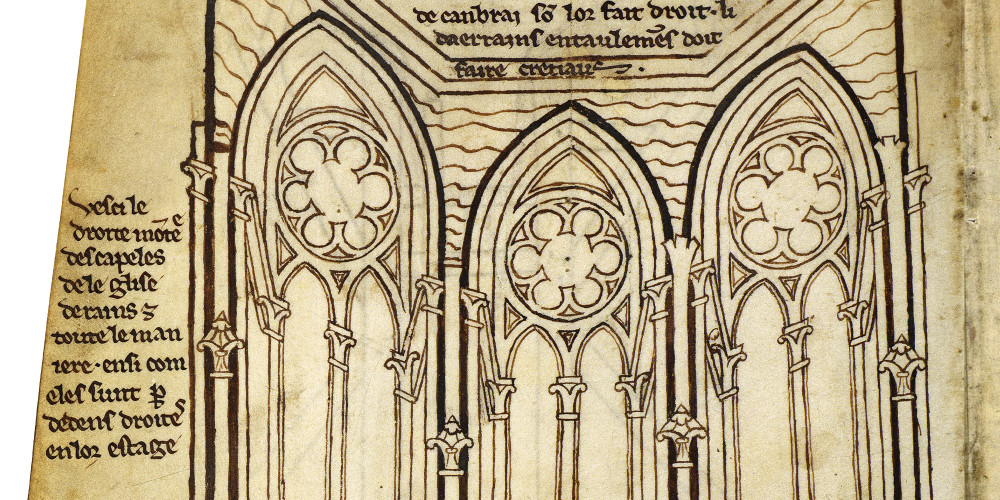 de canbrai sõ lor fait droit· li
daerrains entaulemẽs doit
faire cretiaus
Vesci le
droite mõtee
des capeles
de le glise
de rains ⁊
toute le man
iere· ensi com
eles sunt ꝑ
dedens droites
en lor estage